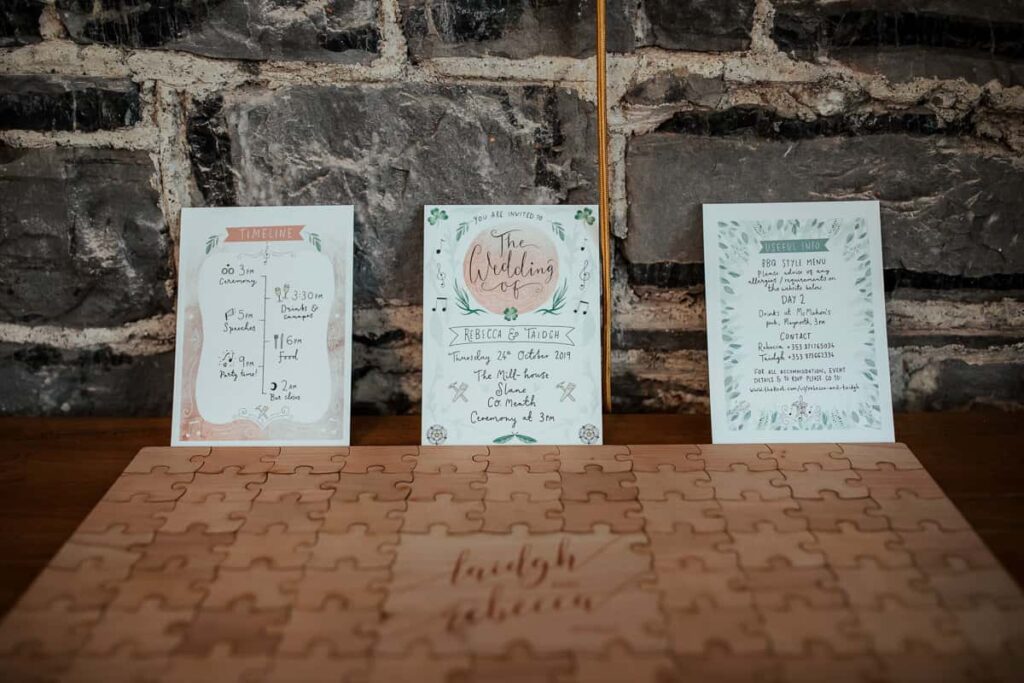 TIMELINE
3PM
Ceremony
3:30PM
Drinks &
Canapes
5PM
Speeches
6PM
Food
9PM
Party time!
2AM
Bar closes
YOU ARE INVITED TO
The
Wedding
of
REBECCA & TAIDGH
Thursday 24th October 2019
The Mill-house
Slane
Co. Meath
Ceremony at 3pm
USEFUL INFO
BBQ STYLE MENU
Please advise of any
allergies / requirements on
the website below
DAY 2
Drinks at McMahon's
pub, Maynooth, 3pm
CONTACT
Rebecca +353
Taidgh +353
FOR ALL ACCOMMODATION, EVENT
DETAILS & TO RSVP PLEASE GO TO:
taidgh
rebecca